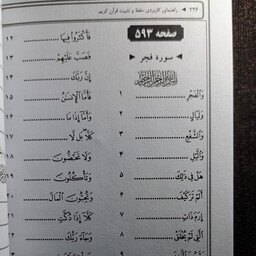 ۲۲۶ ◄ راهنمای کاربردی حفظ و تثبیت قرآن کریم
صفحه ۵۹۳
► سورهٔ فجر ◄
بسم الله الرحمن الرحیم
وَالْفَجْرِ ........ ۱
وَلَيَالٍ ........ ۲
وَالشَّفْعِ ........ ۳
وَاللَّيْلِ ........ ۴
هَلْ فِي ذَٰلِكَ ........ ۵
أَلَمْ تَرَ كَيْفَ ........ ۶
إِرَمَ ذَاتِ ........ ۷
الَّتِي لَمْ يُخْلَقْ ........ ۸
وَثَمُودَ الَّذِينَ ........ ۹
فَأَكْثَرُوا فِيهَا ........ ۱۲
فَصَبَّ عَلَيْهِمْ ........ ۱۳
إِنَّ رَبَّكَ ........
فَأَمَّا الْإِنسَانُ ........ ۱۵
وَأَمَّا إِذَا مَا ........
كَلَّا بَل لَّا ........
وَلَا تَحَاضُّونَ ........ ۱۸
وَتَأْكُلُونَ ........
وَتُحِبُّونَ الْمَالَ ........
كَلَّا إِذَا دُكَّتِ ........
وَجَاءَ رَبُّكَ ........